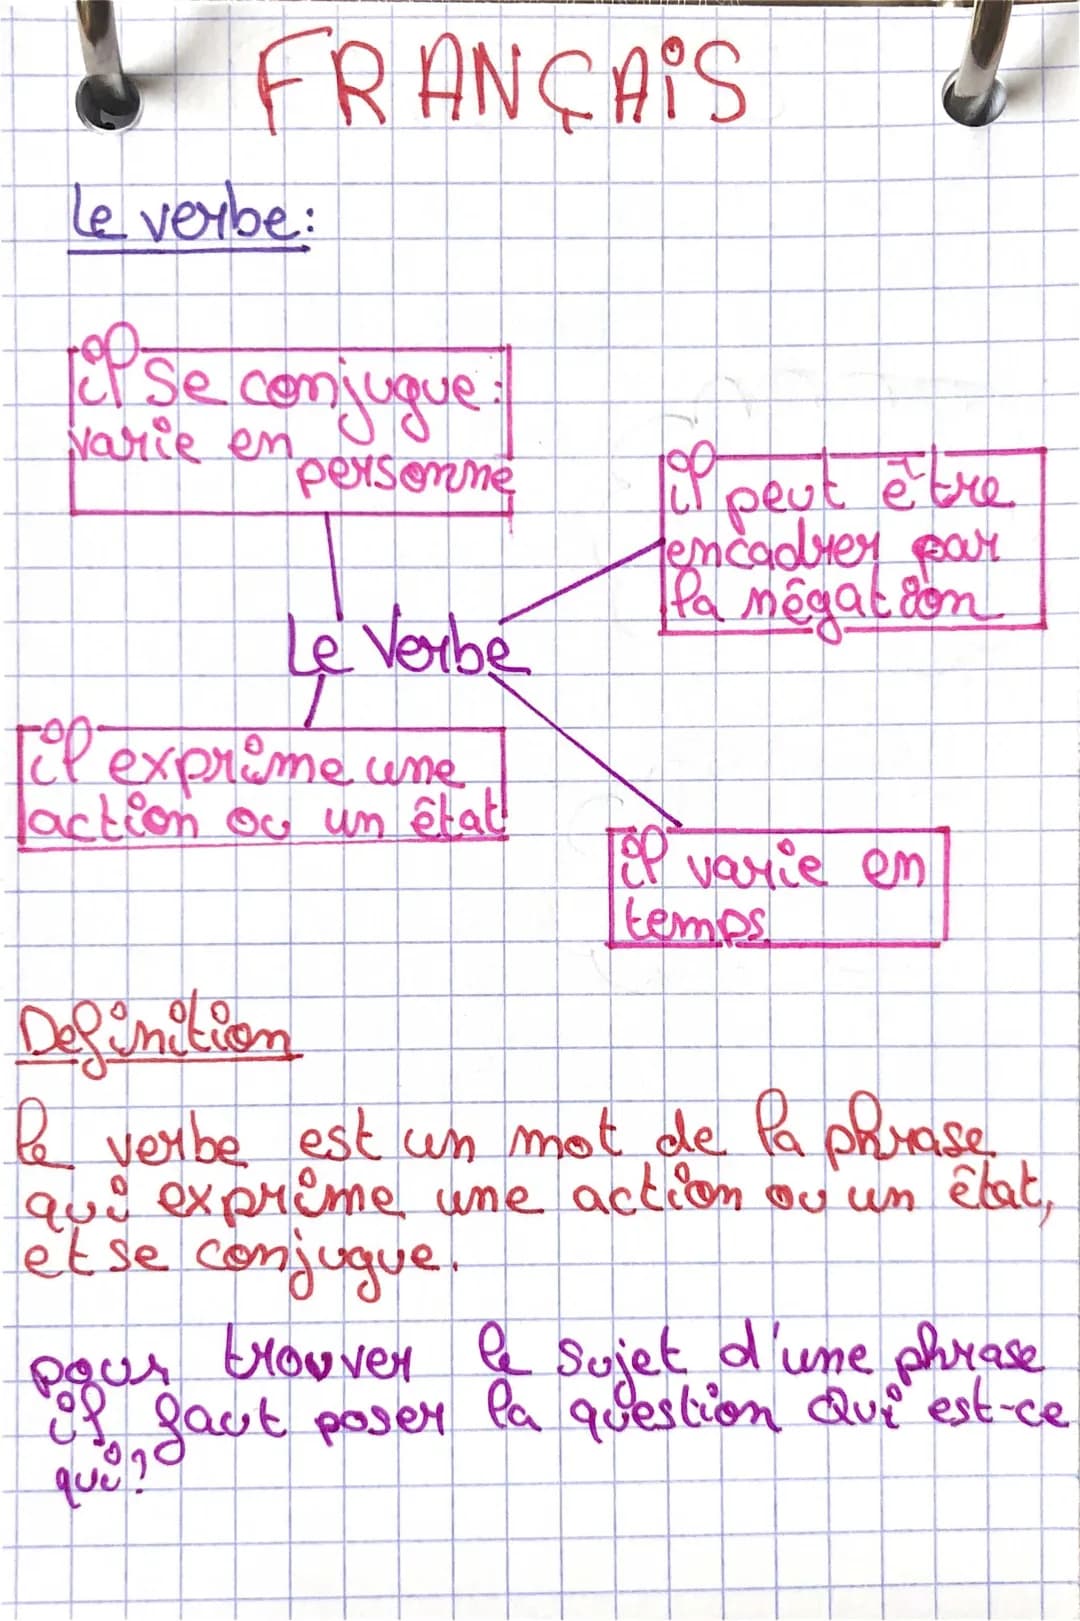 FRANÇAiS
le verbe:
il se conjugue:
varie en
personne
il peut être
encadrer par
la négation
Le Verbe
il exprime une
action ou un êtat
il varie en
temps
Definition
le verbe est un mot de la phrase
qui exprime une action ou un êtat,
et se conjugue.
pour trouver le sujet d'une phrase
il faut poser la question Qui est-ce
qui?